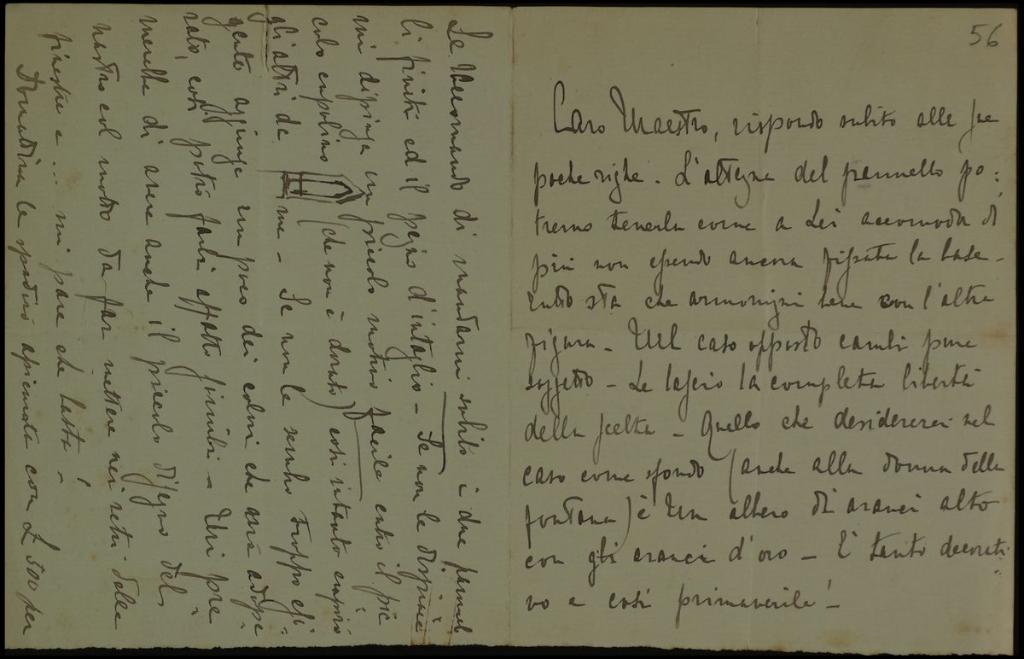 56
Caro Maestro, rispondo subito alle sue
poche righe. L'altezza del pannello po=
tremo tenerla come a Lei accomoda di
più non essendo ancora fissata la base -
tutto sta che armonizzi bene con l'altra
figura - Nel caso opposto cambi pure
soggetto - Le lascio la completa libertà
della scelta - Quello che desidererei nel
caso come sfondo (anche alla donna della
fontana) è un albero di aranci alto
con gli aranci d'oro - E' tanto decorati=
vo e così primaverile! -
Le raccomando di mandarmi subito i due pannel
li finiti ed il pezzo d'intaglio - Se non le dispiace
mi dipinga un piccolo motivo facile entro il pic
colo cupolino (che non è dorato) così intanto
gli altri da me - Se non le troppo
aggiunge un poco dei colori che avrà adope
rato, così potrò farli affatto simili - Mi pre
merebbe di avere anche il piccolo disegno del
nastro col motto da far mettere nei vetri delle
finestre e... mi pare che basta -
Domattina le spedirò assicurata con L 500 per